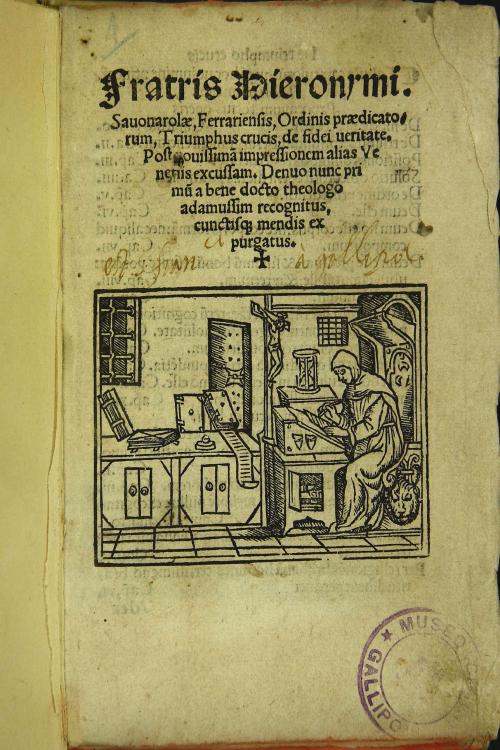 Fratris Hieronymi.
Sauonarolæ, Ferrariensis, Ordinis prædicato/
rum, Triumphus crucis, de fidei ueritate.
Post nouissimā impressionem alias Ve
netijs excussam. Denuo nunc pri
mū a bene docto theologo
adamussim recognitus,
cunctisq; mendis ex
purgatus.
✝
a gallipoli
★ MUSEO
GALLIPO